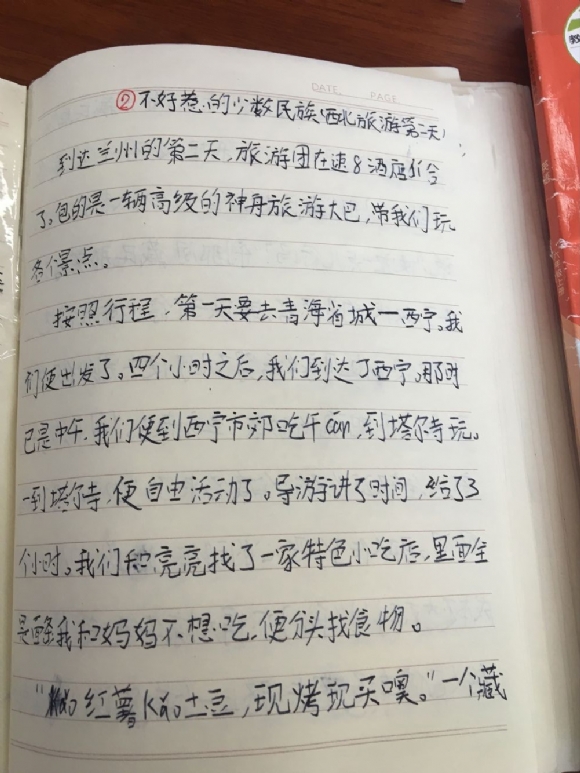 DATE. PAGE
②不好惹的少数民族(西北旅游第二天)
到达兰州的第二天,旅游团在速8酒店集合
了。包的是一辆高级的神舟旅游大巴,带我们玩
各个景点。
按照行程,第一天要去青海省城一西宁。我
们便出发了。四个小时之后,我们到达了西宁。那时
已是中午,我们便到西宁市郊吃午cān,到塔尔寺玩。
一到塔尔寺,便自由活动了。导游讲了时间,给了3
个小时。我们和亮亮找了一家特色小吃店,里面全
是醋我和妈妈不想吃,便分头找食物。
"kǎo红薯kǎo土豆,现烤现买噢。"一个藏
教